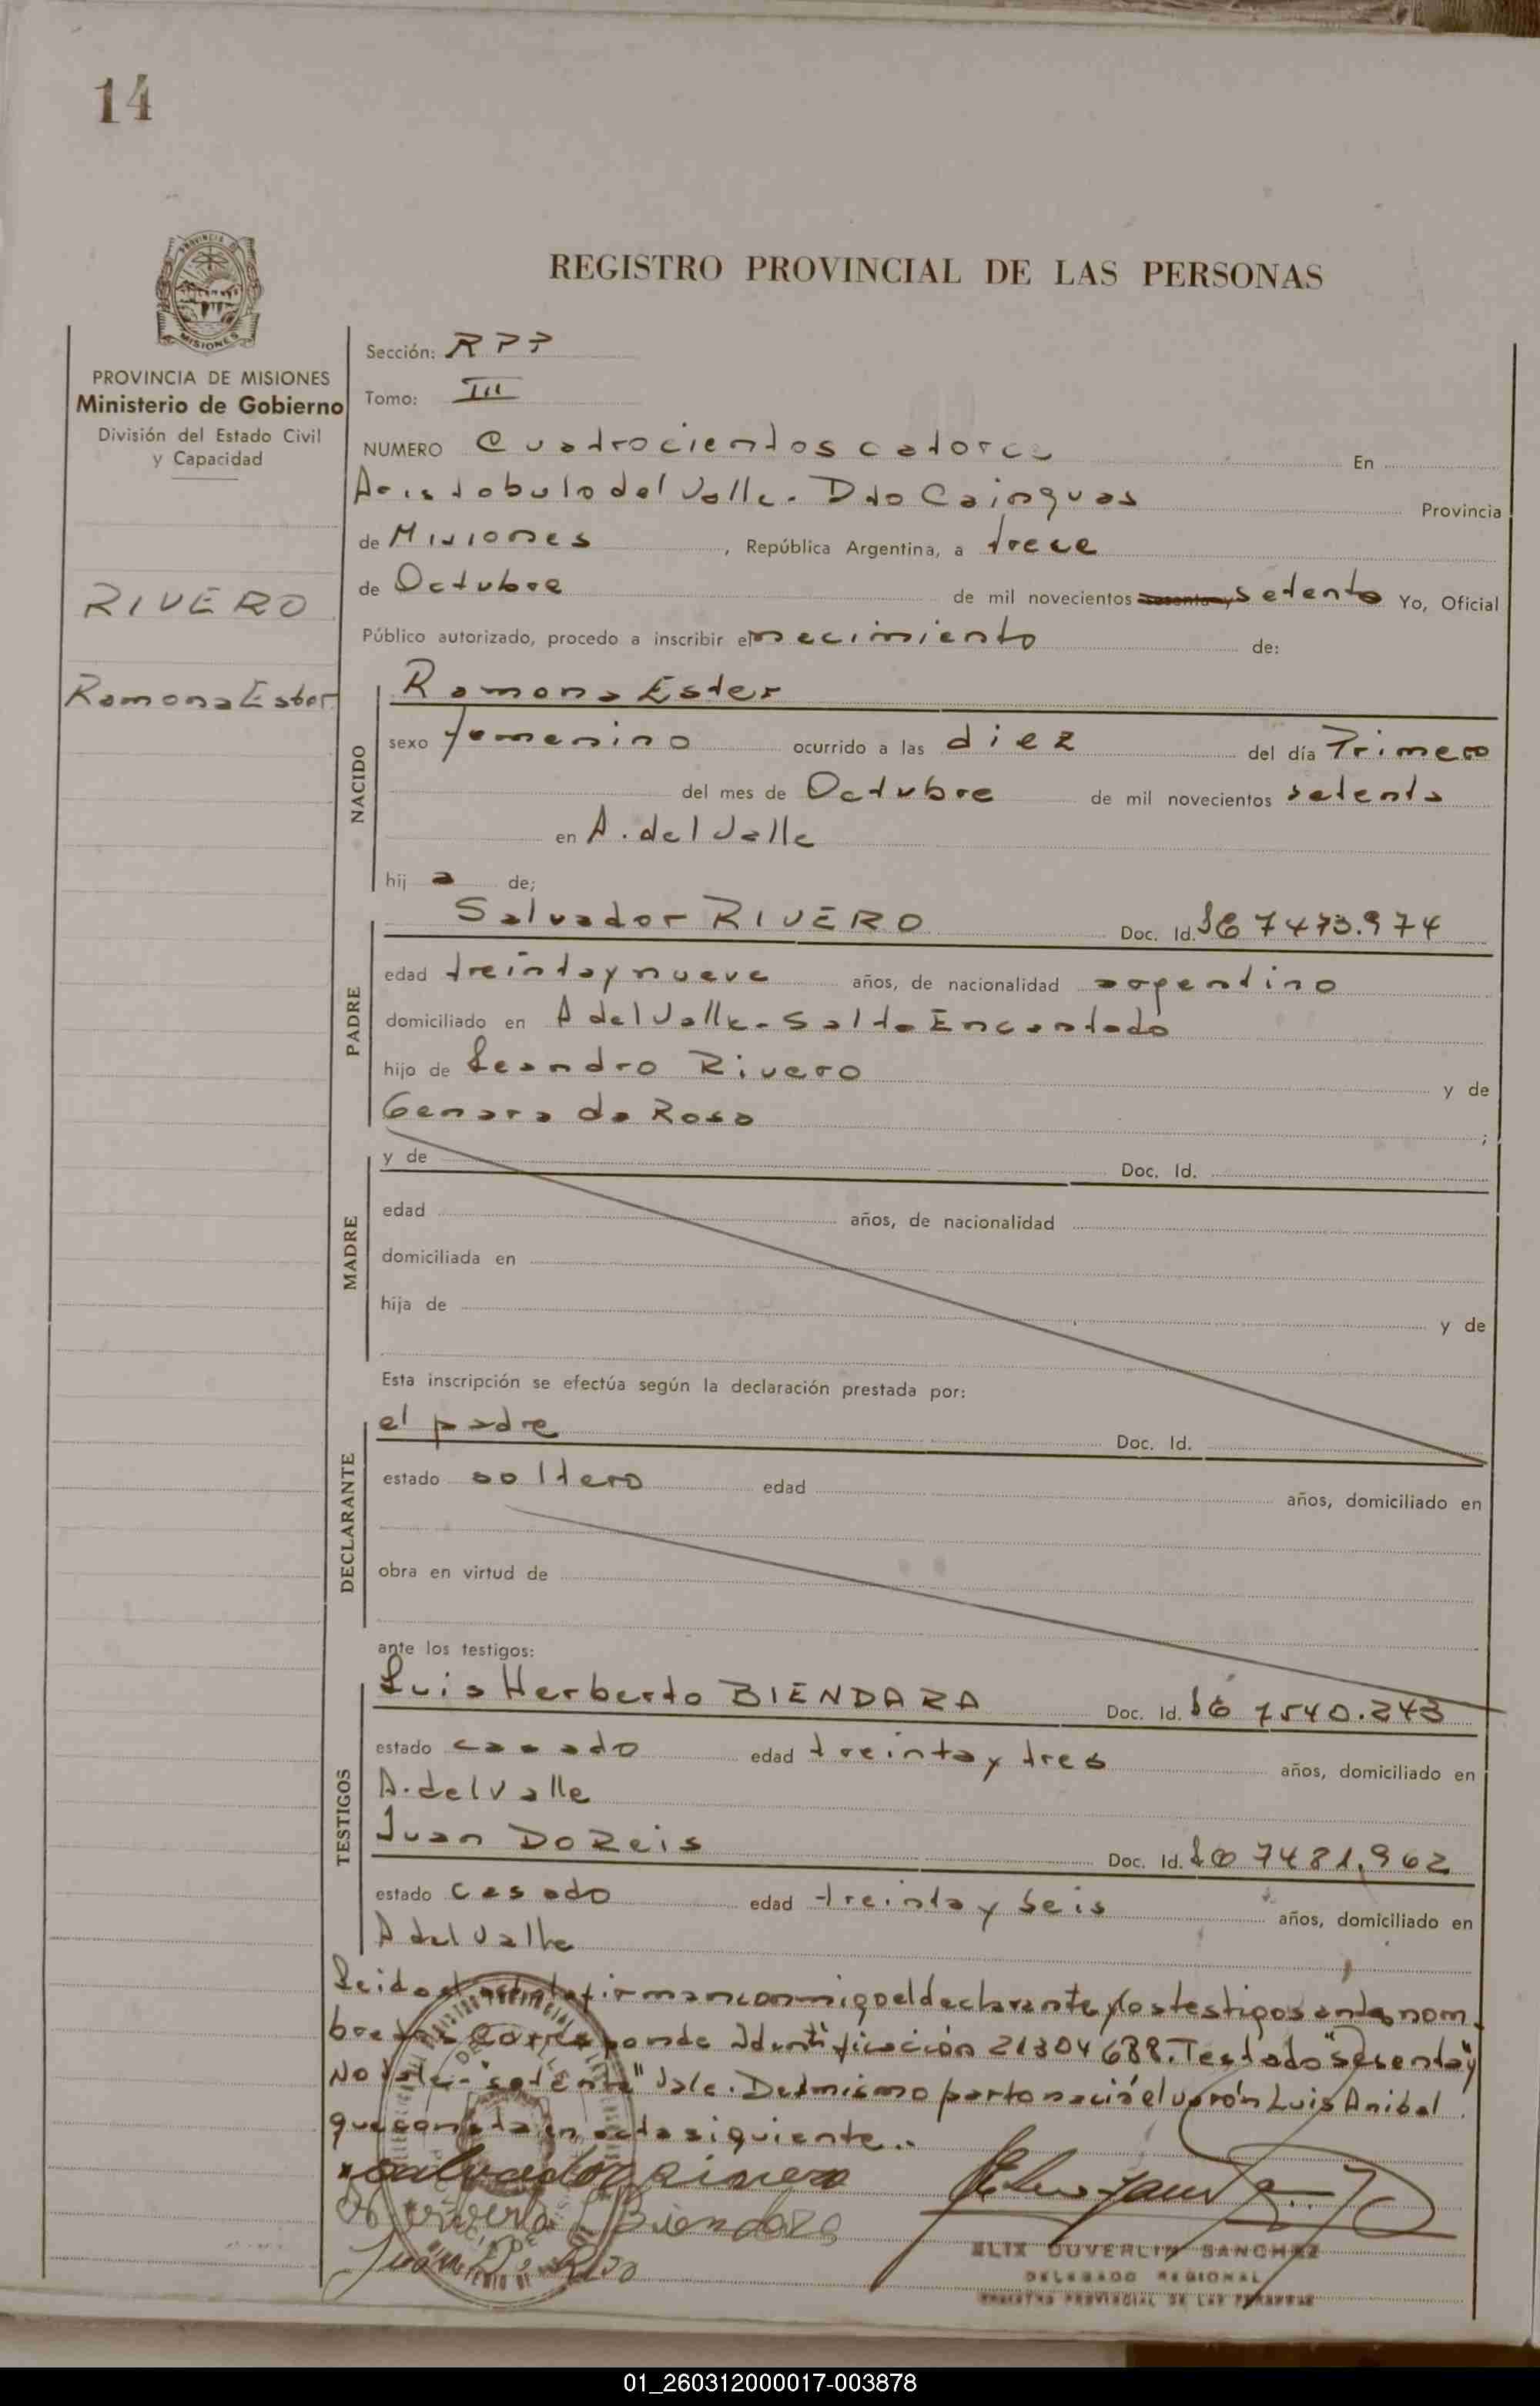 14
REGISTRO PROVINCIAL DE LAS PERSONAS
MISIONES
PROVINCIA DE MISIONES
Ministerio de Gobierno
División del Estado Civil
y Capacidad
RIVERO
Ramona Ester
Sección: RPP
Tomo: III
NUMERO Cuatrocientos catorce En
Aristobulo del Valle. Dto Cainguas Provincia
de Misiones, República Argentina, a trece
de Octubre de mil novecientos sesenta y setenta Yo, Oficial
Público autorizado, procedo a inscribir el necimiento de:
NACIDO
Ramona Ester
sexo femenino ocurrido a las diez del día Primero
del mes de Octubre de mil novecientos setenta
en A. del Valle
hij a de;
PADRE
Salvador RIVERO Doc. Id. LE 7473.974
edad treinta y nueve años, de nacionalidad argentino
domiciliado en A del Valle - Salto Encantado
hijo de Leandro Rivero y de
Genara da Rosa ;
MADRE
y de Doc. Id.
edad años, de nacionalidad
domiciliada en
hija de y de
Esta inscripción se efectúa según la declaración prestada por:
DECLARANTE
el padre Doc. Id.
estado soltero edad años, domiciliado en
obra en virtud de
ante los testigos:
TESTIGOS
Luis Herberto BIENDARA Doc. Id. LE 7540.243
estado casado edad treinta y tres años, domiciliado en
A. del Valle
Juan Do Reis Doc. Id. LE 7481.962
estado casado edad treinta y seis años, domiciliado en
A del Valle
Leido el acta firman conmigo el declarante y los testigos antes nom
brados Corresponde Identificación 21304688. Testado "sesenta y"
No Vale - "setenta" Vale. Del mismo parto nació el varón Luis Anibal
que consta en acta siguiente..
Salvador Rivero
Herberto Biendara
Juan Do Reis
ELIX DUVERLIN SANCHEZ
DELEGADO REGIONAL
REGISTRO PROVINCIAL DE LAS PERSONAS
01_260312000017-003878